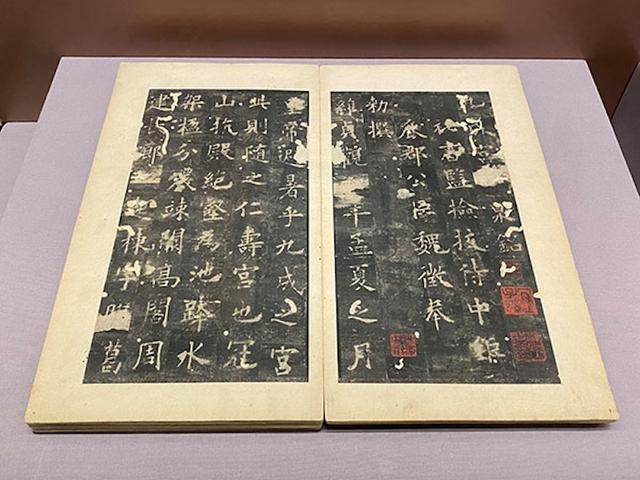 九成宫泉銘
秘書監檢挍侍中鉅
鹿郡公臣魏徵奉
勑撰
維貞觀年孟夏之月
皇帝避暑乎九成之宫
此則隨之仁壽宫也冠
山抗殿絶壑為池跨水
架楹分巖竦闕高閣周
建長廊起棟宇膠葛